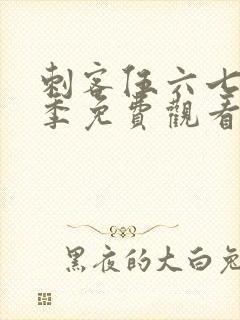 刺客伍六七
季免費觀看
黑夜的大白兔